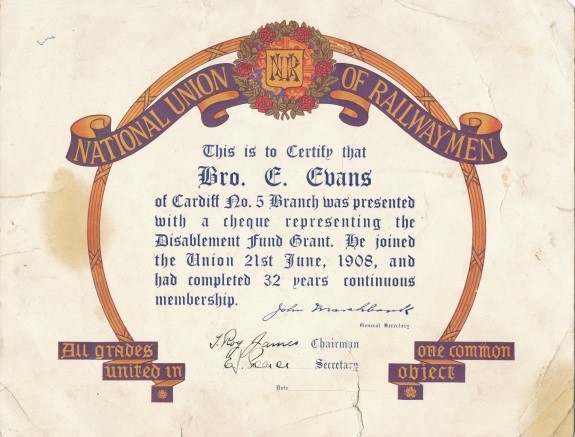 NUR
NATIONAL UNION OF RAILWAYMEN
This is to Certify that
Bro. E. Evans
of Cardiff No. 5 Branch was presented
with a cheque representing the
Disablement Fund Grant. He joined
the Union 21st June, 1908, and
had completed 32 years continuous
membership.
John Marchbank
General Secretary
T. Roy James Chairman
Secretary
Date
All grades
united in
one common
object